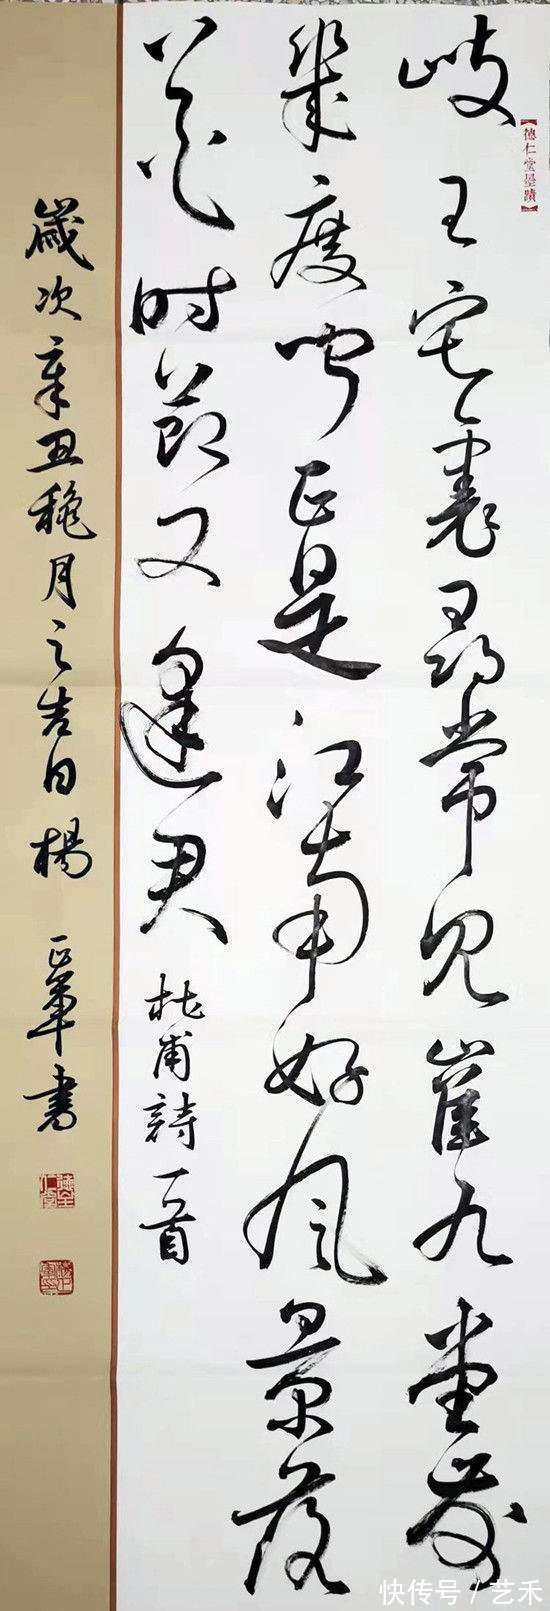 【德仁堂墨蹟】
岐王宅裏尋常見崔九堂前
幾度聞正是江南好風景落
花时節又逢君 杜甫詩一首
歲次辛丑穐月之吉日楊正書
快传号/艺禾